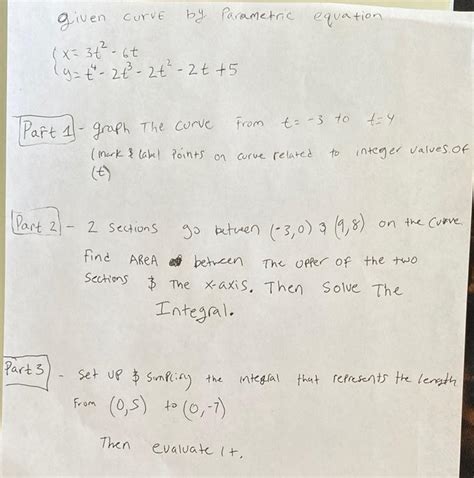 given curve by parametric equation
{ x = 3t² - 6t
y = t⁴ - 2t³ - 2t² - 2t + 5
Part 1 - graph The curve from t = -3 to t = 4
(mark & label points on curve related to integer values of
(t)
Part 2 - 2 sections go between (-3,0) & (9,8) on the curve
find AREA between The upper of the two
sections $ The x-axis. Then Solve The
Integral.
Part 3 - set up $ simpliry the integral that represents the length
From (0,5) to (0,-7)
Then evaluate it.